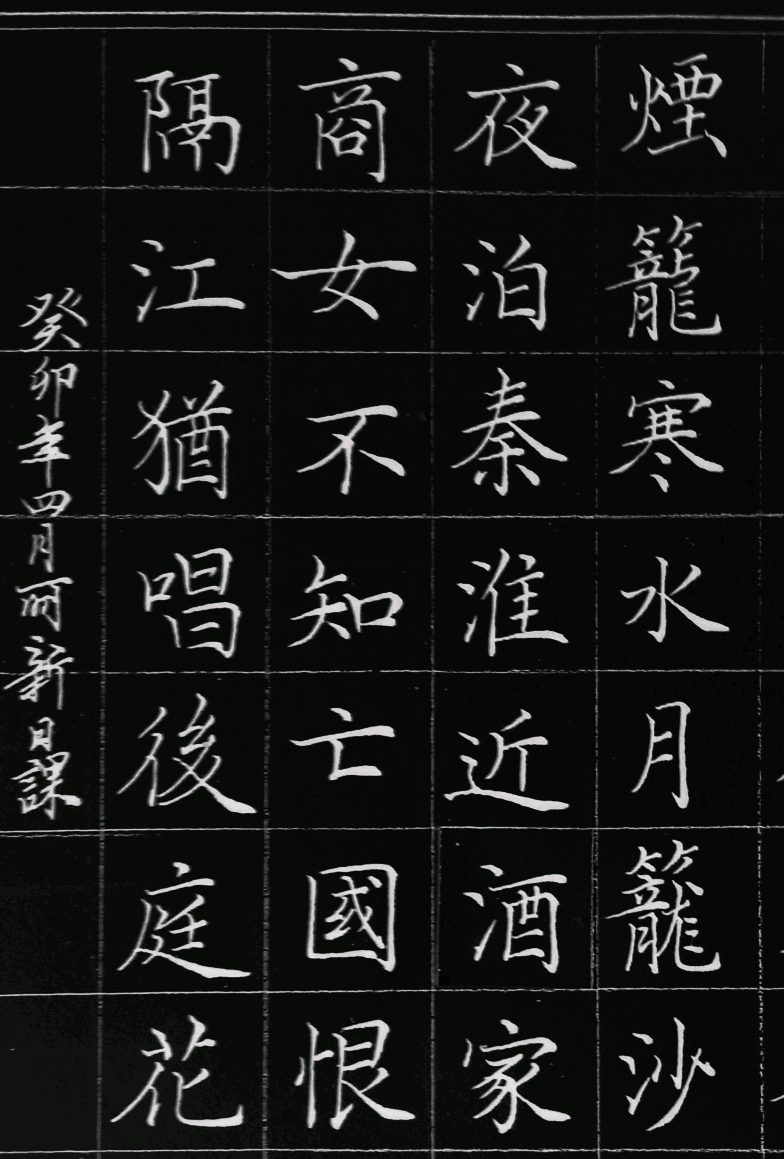 煙籠寒水月籠沙
夜泊秦淮近酒家
商女不知亡國恨
隔江猶唱後庭花
癸卯年四月丽新日課